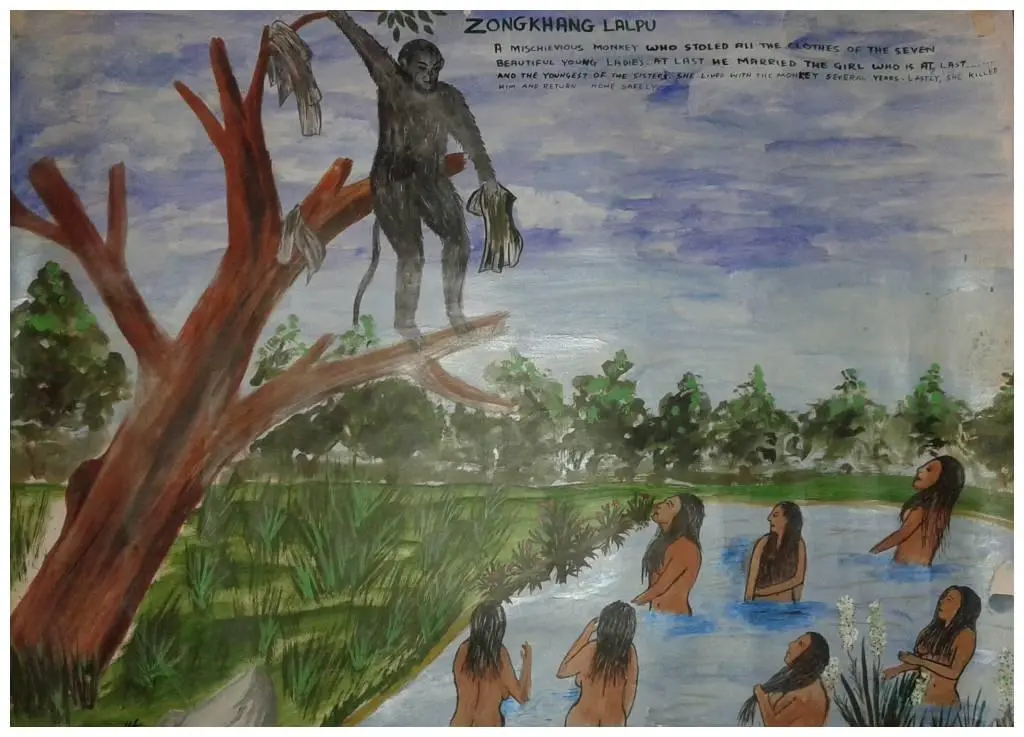 ZONGKHANG LALPU
A MISCHIEVIOUS MONKEY WHO STOLED ALL THE CLOTHES OF THE SEVEN
BEAUTIFUL YOUNG LADIES. AT LAST HE MARRIED THE GIRL WHO IS AT LAST......
AND THE YOUNGEST OF THE SISTERS. SHE LIVED WITH THE MONKEY SEVERAL YEARS. LASTLY, SHE KILLED
HIM AND RETURN HOME SAFELY.